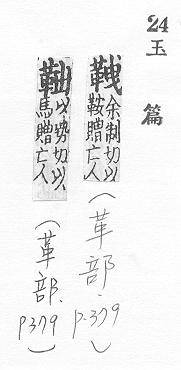 24
玉篇
䩱余制切以鞍贈亡人
(革部.p.379)
以勢切以馬贈亡人
(革部.p379)